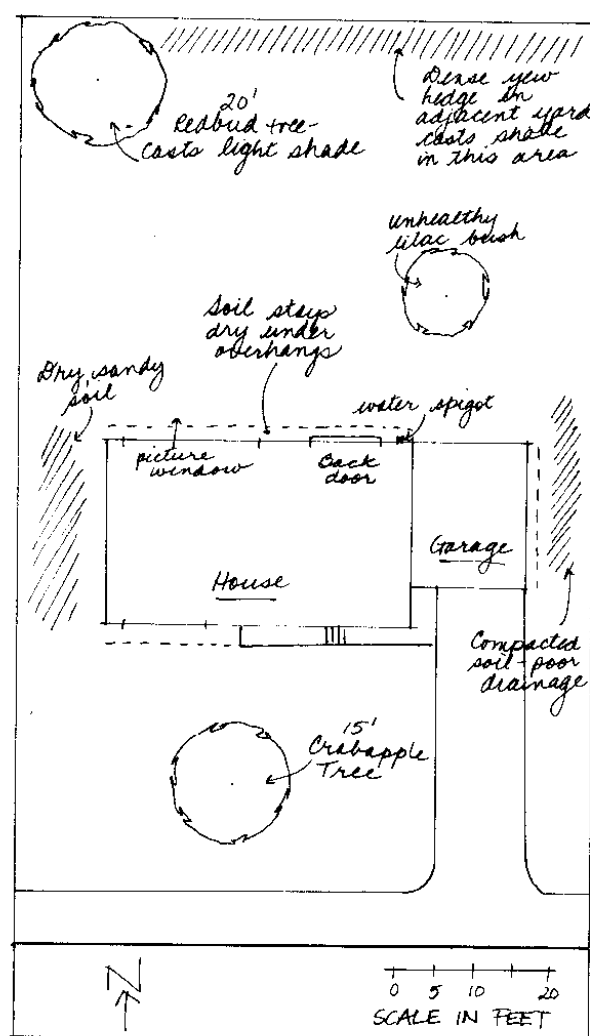 20'
Redbud tree-
casts light shade
Dense yew
hedge in
adjacent yard
casts shade
in this area
unhealthy
lilac bush
Soil stays
dry under
overhangs
Dry sandy
soil
water spigot
picture
window
Back
door
Garage
House
Compacted
soil-poor
drainage
15'
Crabapple
Tree
N
0 5 10 20
SCALE IN FEET